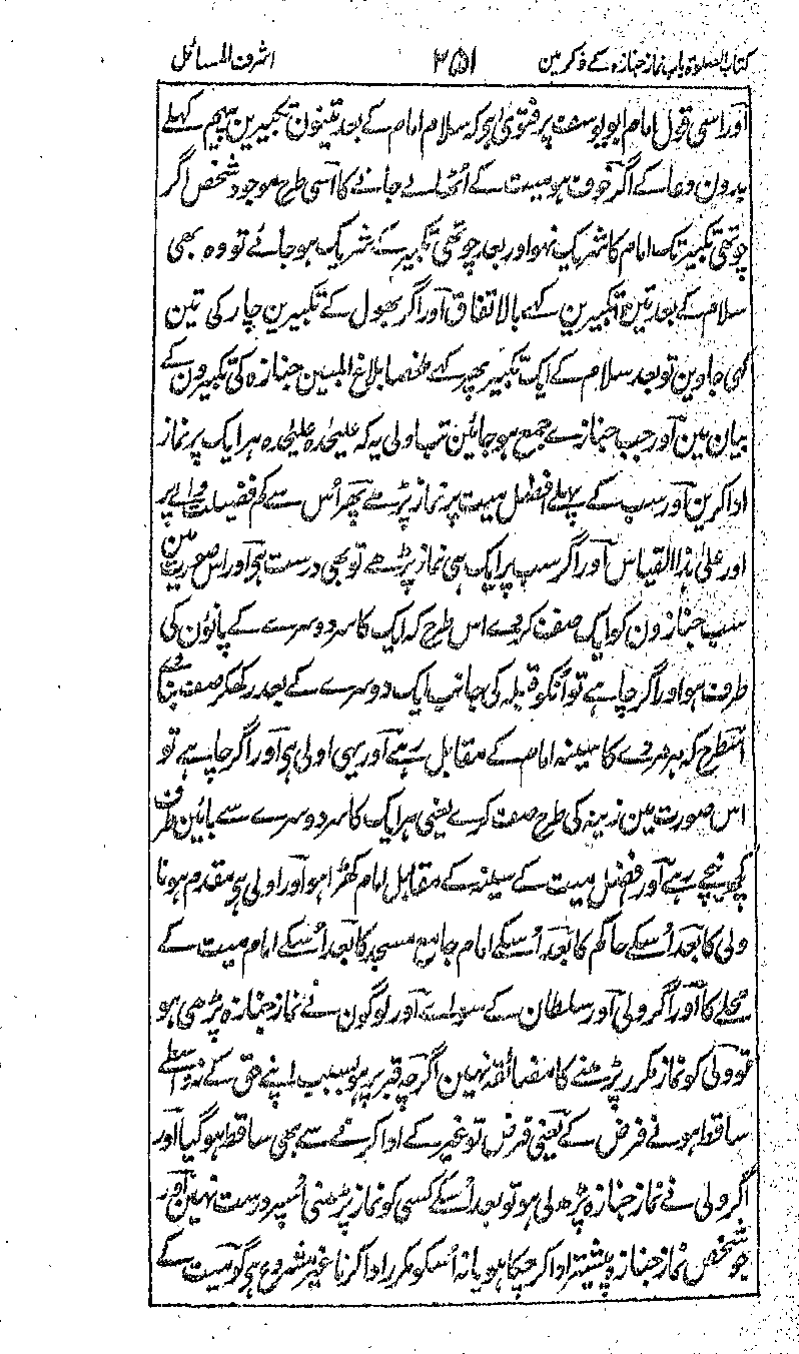 کتاب الصلوة باب نماز جنازہ کے ذکر مین ۲۵۱ اشرف المسائل
اور اسی قول امام ابو یوسف پر فتویٰ ہی کہ سلام امام کے بعد تینون تکبیرین پیہم کہلے
بدون دعا کے اگر خوف ہو میت کے اُٹھالے جانے کا آسی طرح موجود شخص اگر
چوتھی تکبیر تک امام کا شریک نہو اور بعد چوتھی تکبیر کے شریک ہو جائے تو وہ بھی
سلام کے بعد تین تکبیرین کہے بالاتفاق آور اگر بھول کے تکبیرین چار کی تین
کہی جاوین تو بعد سلام کے ایک تکبیر پھر کہے ابلاغ المبین جنازہ کی تکبیرون کے
بیان مین آور جب جنازے جمع ہو جائین تب اولی یہ کہ علیحدہ علیحدہ ہر ایک پر نماز
ادا کرین آور سب کے پہلے افضل میت پر نماز پڑھے پھر اُس سے کم فضیلت والے پر
اور علیٰ ہذا القیاس آور اگر سب پر ایک ہی نماز پڑھے تو بھی درست ہی آور اس صورت مین
سب جنازون کو ایک صف کر دے اس طرح کہ ایک کا سر دوسرے کے پانؤن کی
طرف ہو اور اگر چاہے تو اُنکو قبلہ کی جانب ایک دوسرے کے بعد رکھکر صف بنائے
اسطرح کہ ہر مردے کا سینہ امام کے مقابل رہے آور یہی اولی ہی آور اگر چاہے تو
اس صورت مین زینہ کی طرح صف کرے یعنی ہر ایک کا سر دوسرے سے بائین طرف
کچھ نیچے رہے آور افضل میت کے سینہ کے مقابل امام کھڑا ہو آور اولی ہی مقدم ہونا
ولی کا بعد اُسکے حاکم کا بعد اُسکے امام جامع مسجد کا بعد اُسکے امام میت کے
محلے کا آور اگر ولی آور سلطان کے سوالے آور لوگون نے نماز جنازہ پڑھی ہو
تو ولی کو نماز مکرر پڑھنے کا مضائقہ نہین اگرچہ قبر پر ہو بسبب اپنے حق کے نہ واسطے
ساقط ہونے فرض کے یعنی فرض تو غیر کے ادا کرنے سے بھی ساقط ہو گیا آور
اگر ولی نے نماز جنازہ پڑھ لی ہو تو بعد اُسکے کسی کو نماز پڑھنی اُسپر درست نہین آور
جو شخص نماز جنازہ پیشتر ادا کر چکا ہو یا نہ اُسکو مکرر ادا کرنا غیر مشروع ہی گو میت کے